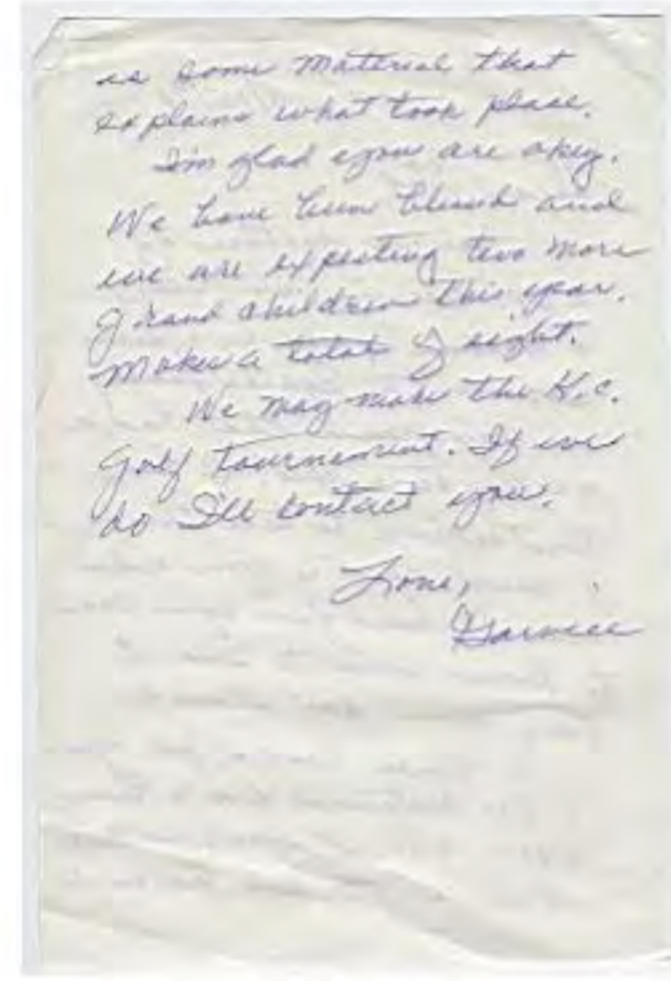 is some material that
explains what took place.
I'm glad you are okey.
We have been blessed and
we are expecting two more
grand children this year.
Makes a total of eight.
We may make the K.C.
Golf tournament. If we
do I'll contact you.
Love,